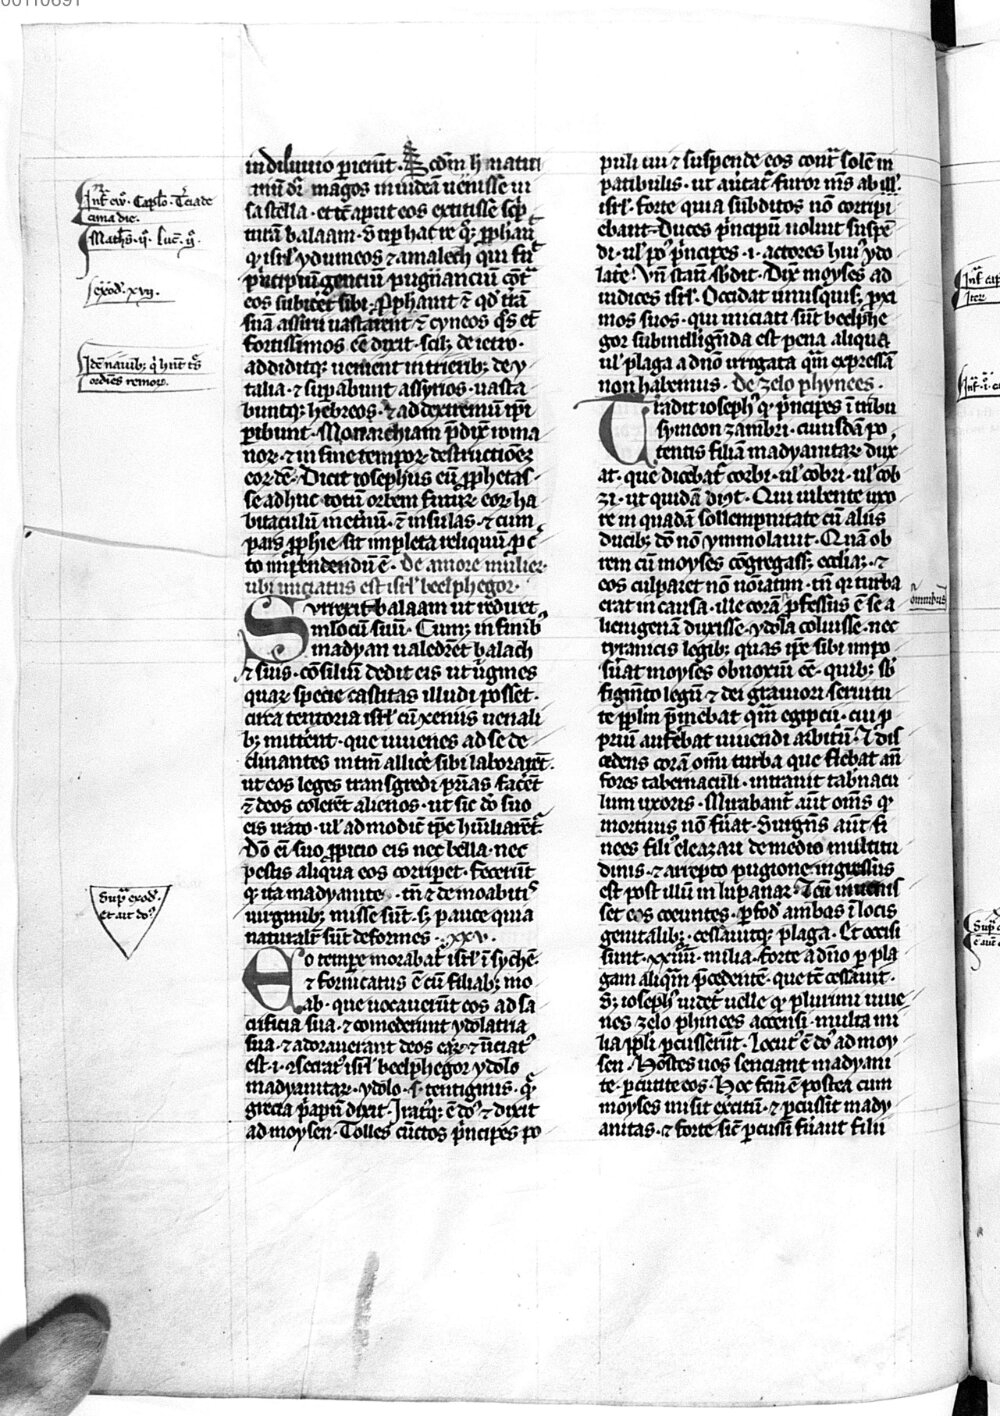 00110691
in diluuio perierunt. Scdm h natiui
tatem dr magos in iudeam uenisse ui
sa stella. et te aput eos extitisse scrip
turam balaam. Semper hac te q; ppham
q isrl ydumeos & amalech qui fuit
principium gencium pugnancium contra
eos subiceret sibi. pphauit & qd itam
suam assirii uastarent & cyneos qs et
fortissimos ee dixit. scil; de ietro.
addiditq; uenient in trierib; de y
talia. & supabunt assyrios. uasta
buntq; hebreos. & ad extremum ipi
pibunt. Monarchiam pdixit roma
nor. & in fine tempor destructionez
eor dem. Dicit iosephus eum pphetas
se adhuc totum orbem futur eor ha
bitaculum in etnum. & insulas. & cum
pars pphie sit impleta reliquum p c
to impendendum e. de amore mulier
ubi iniciatus est isrl beelphegor.
Surrexit balaam ut rediret
in locum suum. Cumq; in finib;
madyan ualediceret balach
& suis. consilium dedit eis ut uirgines
quar specie castitas illudi posset.
circa tentoria isrl cum xeniis uenali
b; mittent. que iuuenes ad se de
clinantes intim allice sibi laborarent.
ut eos leges transgredi prias facent
& deos colerent alienos. ut sic do suo
eis irato. ul ad modic tpe humiliarent.
Do eni suo ppicio eis nec bella. nec
pestis aliqua eos corripet. fecerunt
q ita madyanite. tn & de moabitis
uirginib; misse sunt. s; pauce quia
naturalr sunt deformes. xxv.
Eo tempore morabat isrl in sychem
& fornicatus e cum filiab; mo
ab. que uocauerunt eos ad sa
crificia sua. & comederunt ydolatria
sua. & adorauerunt deos ear & iniciat
est. i. osecrat isrl beelphegor ydolo
madyanitar. ydolo. s. tentiginis. q
grecia priapum dixit. Iratq; e dns & dixit
ad moysen. Tolles cunctos principes po
puli tui & suspende eos contra solem in
patibulis. ut auertat furor meus ab
isrl. forte quia subditos non corripi
ebant. Duces principum uoluit suspe
di. ul po principes. i. actores huius ydo
latie. Vn statim sbdit. Dixit moyses ad
iudices isrl. Occidat unusquisq; pxi
mos suos. qui iniciati sunt beelphe
gor subintelligenda est pena aliqua
ul plaga a dno irrogata quam expressam
non habemus. de zelo phynees.
Tradit ioseph q princeps in tribu
symeon zambri. cuiusdam po
tentis filiam madyanitar dux
at. que dicebat corbi. ul cobri. ul cob
zi. ut quidam dicunt. Qui iubente uxo
re in quadam sollempnitate cum aliis
ducib; do non ymmolauit. Quam ob
rem cum moyses congregasset eccliam. &
eos culparet non nominatim. tn quia turba
erat in causa. ille coram pfessus e se a
lienigenam duxisse. ydola coluisse. nec
tyrannicis legib; quas ipe sibi impo
suerat moyses obnoxium ee. quib; sb
figmento legum & dei grauiori seruitu
te pplm pmebat quam egipcii. cui p
prium auferebat uiuendi arbitrium. & dis
cedens coram omni turba que flebat an
fores tabernaculi. intrauit tabnacu
lum uxoris. Mirabant aut oms q
mortuus non fuerat. Surgens aut fi
nees filius eleazari de medio multitu
dinis. & arrepto pugione ingressus
est post illum in lupanar. & cum inuenis
set eos coeuntes. pfodit ambos in locis
genitalib;. cessauitq; plaga. Et occisi
sunt. xxiiii. milia. forte a dno p pla
gam aliquam pcedentem. que te cessauit.
S; ioseph uidet uelle q plurimi iuue
nes zelo phinees accensi. multa mi
lia ppli pcusserunt. Locut e dns ad moy
sen. Hostes uos senciant madyani
te. pcutite eos. Hoc factum e postea cum
moyses misit exercitum. & pcussit mady
anitas. & forte sic pcussi fuerant filii
Math. ii. Luc. ii.
exod. xvii.
de nauib; q hnt ts
ordies remor.
omnibus
Sup exod.
et ait dns